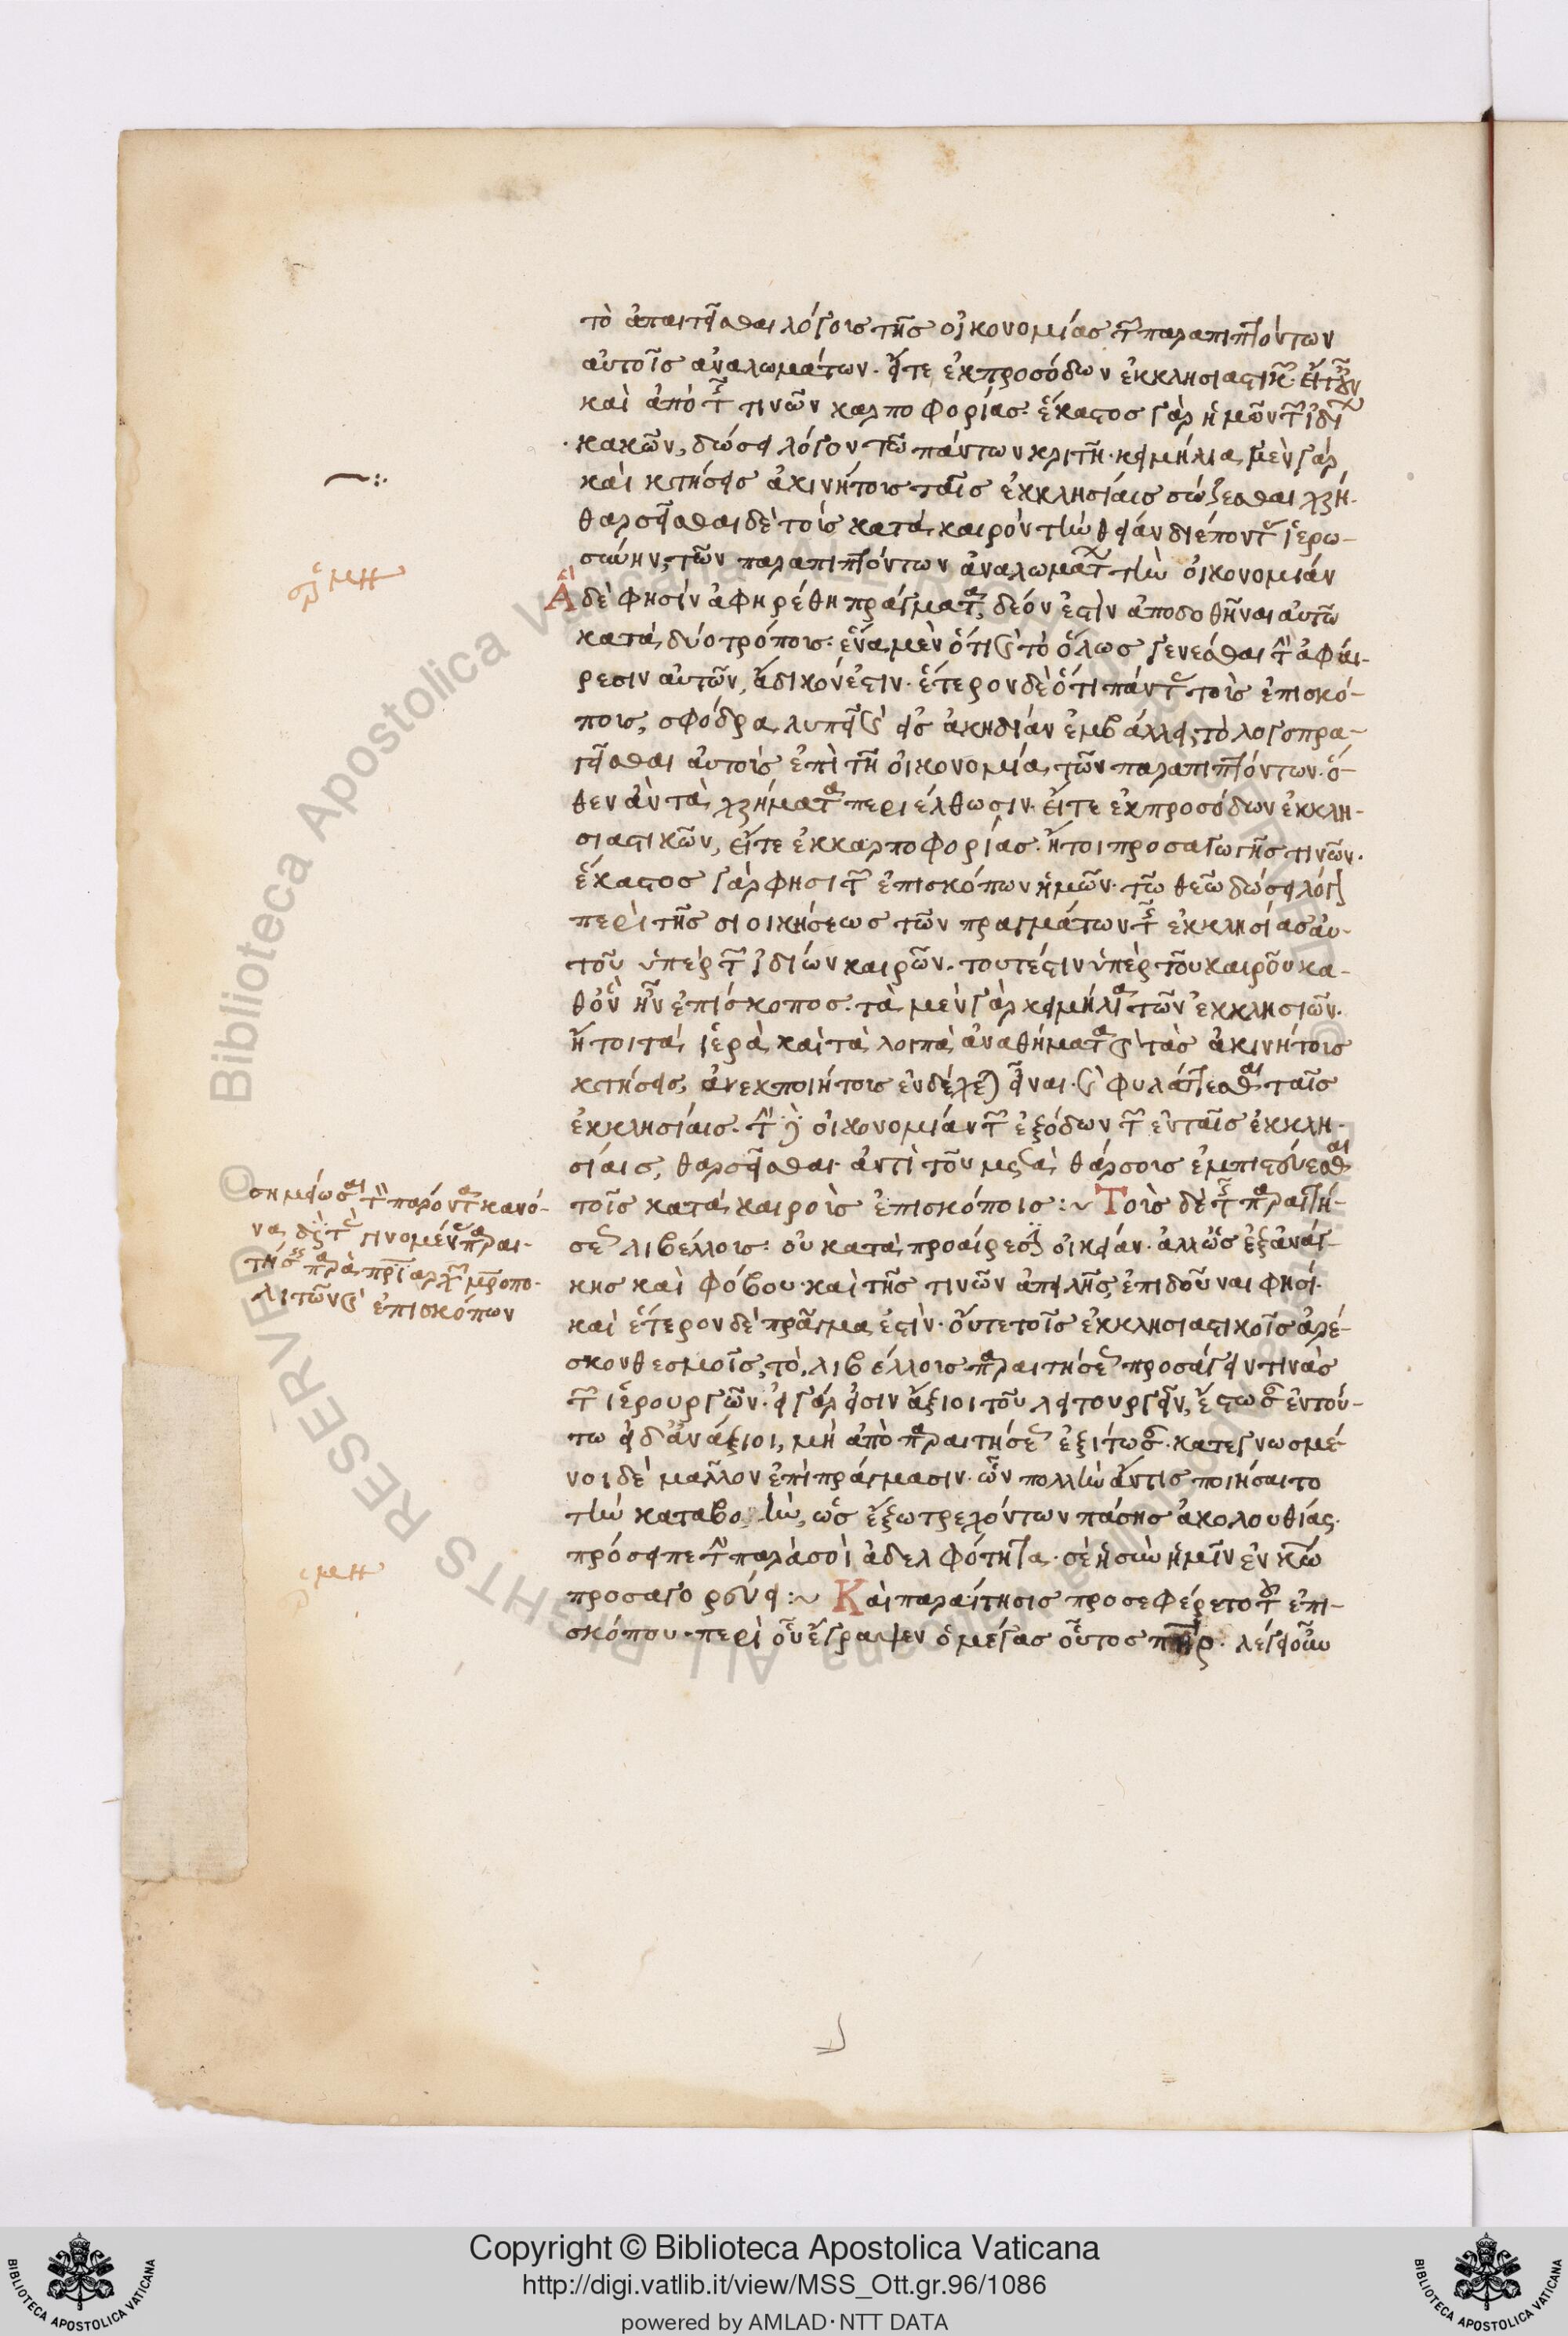 τὸ ἀπαιτεῖσθαι λόγους τῆς οἰκονομίας τῶν παραπιπτόντων
αὐτοῖς ἀναλωμάτων. εἴτε ἐκ προσόδων ἐκκλησιαστικῶν. εἴτ᾽ οὖν
καὶ ἀπὸ τῆς τινῶν καρποφορίας. ἕκαστος γὰρ ἡμῶν τῶν ἰδίων
κακῶν, δώσει λόγον τῶ πάντων κριτῆ. κειμήλια μὲν γὰρ
καὶ κτήσεις ἀκινήτους ταῖς ἐκκλησίαις σώζεσθαι χρή.
θαρσεῖσθαι δὲ τοῖς κατὰ καιρὸν τὴν θείαν διέπουσιν ἱερω-
σύνην, τῶν παραπιπτόντων ἀναλωμάτων τὴν οἰκονομίαν
Ἃ δὲ φησὶν ἀφηρέθη πράγματα, δέον ἐστὶν ἀποδοθῆναι αὐτῶ
κατὰ δύο τρόπους. ἕνα μὲν ὅτι καὶ τὸ ὅλως γενέσθαι τὴν ἀφαί-
ρεσιν αὐτῶν, ἄδικόν ἐστιν. ἕτερον δὲ ὅτι πάντας τοὺς ἐπισκό-
πους, σφόδρα λυπεῖ καὶ εἰς ἀκηδίαν ἐμβάλλει, τὸ λογοπρα-
γεῖσθαι αὐτοὺς ἐπὶ τῆ οἰκονομία τῶν παραπιπτόντων. ὅ-
θεν ἂν τὰ χρήματα περιέλθωσιν. εἴτε ἐκ προσόδων ἐκκλη-
σιαστικῶν, εἴτε ἐκ καρποφορίας. ἤτοι προσαγωγῆς τινῶν.
ἕκαστος γὰρ φησὶ τῶν ἐπισκόπων ἡμῶν. τῶ θεῶ δώσει λόγον
περὶ τῆς διοικήσεως τῶν πραγμάτων τῆς ἐκκλησίας αὐ-
τοῦ ὑπὲρ τῶν ἰδίων καιρῶν. τουτέστιν ὑπὲρ τοῦ καιροῦ κα-
θ᾽ ὃν ἦν ἐπίσκοπος. τὰ μὲν γὰρ κειμήλια τῶν ἐκκλησιῶν.
ἤτοι τὰ ἱερὰ καὶ τὰ λοιπὰ ἀναθήματα καὶ τὰς ἀκινήτους
κτήσεις, ἀνεκποιήτους ἐνδέχεται εἶναι. καὶ φυλάττεσθαι ταῖς
ἐκκλησίαις. τὴν δὲ οἰκονομίαν τῶν ἐξόδων τῶν ἐν ταῖς ἐκκλη-
σίαις, θαρσεῖσθαι. ἀντὶ τοῦ μετὰ θάρσους ἐμπιστεύεσθαι
τοῖς κατὰ καιροὺς ἐπισκόποις :~ Τοὺς δὲ τῆς παραιτή-
σεως λιβέλλους. οὐ κατὰ προαίρεσιν οἰκείαν. ἀλλ᾽ ὡς ἐξ ἀνάγ-
κης καὶ φόβου. καὶ τῆς τινῶν ἀπειλῆς, ἐπιδοῦναι φησί.
καὶ ἕτερον δὲ πρᾶγμα ἐστὶν. οὔτε τοῖς ἐκκλησιαστικοῖς ἀρέ-
σκον θεσμοῖς, τὸ, λιβέλλους παραιτήσεως προσάγειν τινὰς
τῶν ἱερουργῶν. εἰ γάρ εἰσιν ἄξιοι τοῦ λειτουργεῖν, ἔστωσαν ἐν τού-
τω εἰ δ᾽ ἀνάξιοι, μὴ ἀπὸ παραιτήσεως ἐξίτωσαν. κατεγνωσμέ-
νοι δὲ μᾶλλον ἐπὶ πράγμασιν. ὧν πολλὴν ἄν τις ποιήσαιτο
τὴν καταβολὴν, ὡς ἔξω τρεχόντων πάσης ἀκολουθίας.
πρόσειπε τὴν παρὰ σοὶ ἀδελφότητα. σὲ ἡ σὺν ἡμῖν ἐν κῶ
προσαγορεύει :~ Καὶ παραίτησις προσεφέρετο τοῦ ἐπι-
σκόπου. περὶ οὗ ἔγραψεν ὁ μέγας οὗτος πηρ. λέγει οὖν
σημείωσαι τὸν παρόντα κανό-
να διὰ τὰς γινομένας παραι-
τήσεις παρὰ πριαρχῶν μροπο-
λιτῶν καὶ ἐπισκόπων
Copyright © Biblioteca Apostolica Vaticana
http://digi.vatlib.it/view/MSS_Ott.gr.96/1086
powered by AMLAD·NTT DATA
BIBLIOTECA APOSTOLICA VATICANA
BIBLIOTECA APOSTOLICA VATICANA
© Biblioteca Apostolica Vaticana ALL RIGHTS RESERVED